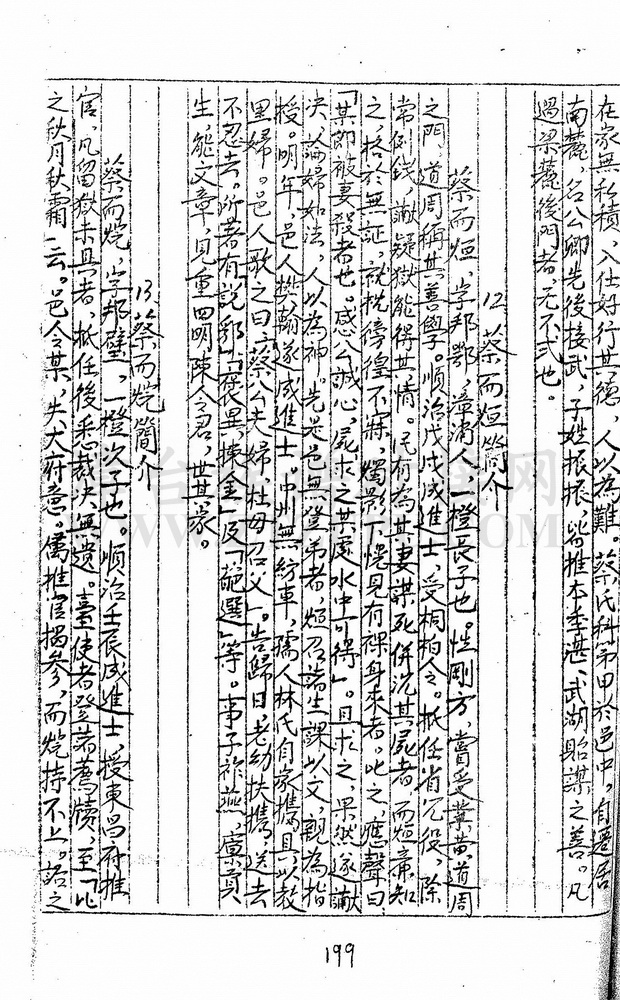 在家無私積，入仕好行其德，人以為難。蔡氏科第甲於邑中，自遷居
南麓，名公卿先後接武，子姓振振，皆推本季湛、武湖貽謀之善。凡
過梁麓後門者，无不式也。
12.蔡而烜簡介
蔡而烜，字邦鄂，漳浦人，一橙長子也。性剛方，嘗受業黃道周
之門，道周稱其善學。順治戊戌成進士，受桐柏令。抵任省冗役，除
常例錢，讞疑獄能得其情。民有為其妻謀死併沉其屍者，而烜廉知
之，格於無証，就枕徬徨不寐，燭影下恍見有祼身來者，叱之，應聲曰
「某即被妻殺者也。感公誠心，屍求之某處水中可得」。旦求之，果然，遂讞
决，論婦如法，人以為神。先是邑無登弟者，烜召諸生課以文，親為指
授。明年，邑人樊翰遂成進士。中州無紡車，孺人林氏自家攜具以教
里婦。邑人歌之曰：「蔡公夫婦，杜母召父」。告歸日，老幼扶攜，送去
不忍去。所著有「説鄂」「衺異」「揀金」及「葩選」等。季子祚燕，廪貢
生，能文章，見重四明陳令君，世其家。
13.蔡而熴簡介
蔡而熴，字邦璧，一橙次子也。順治壬辰成進士，授東昌府推
官，凡留獄未具者，抵任後悉裁决無遺。臺使者登諸薦牘，至「比
之秋月秋霜」云。邑令某，失大府意。屬推官揭參，而熴持不上。詒之
199